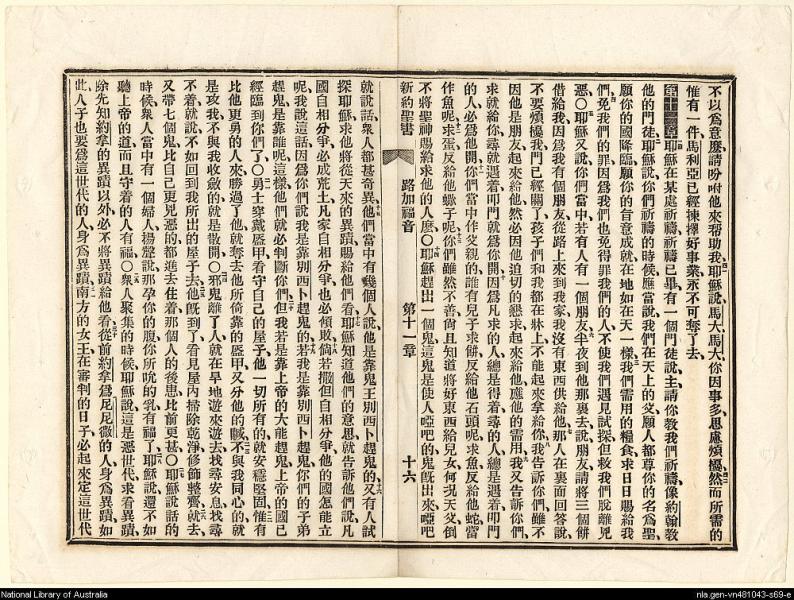 不以爲意麽請吩咐他來帮助我耶穌說馬大馬大你因事多思慮煩擾然而所需的
惟有一件馬利亞已經揀擇好事業永不可奪了去
第十一章耶穌在某處祈禱祈禱已畢有一個門徒說主請你教我們祈禱像約翰教
他的門徒耶穌說你們祈禱的時候應當說我們在天上的父願人都尊你的名爲聖
願你的國降臨願你的旨意成就在地如在天一樣我們需用的糧食求日日賜給我
們免我們的罪因爲我們也免得罪我們的人不使我們遇見試探但救我們脫離兇
惡〇耶穌又說你們當中若有人有一個朋友半夜到他那裏去說朋友請將三個餅
借給我因爲我有個朋友從路上來到我家我沒有東西供給他那人在裏面回答說
不要煩擾我門已經關了孩子們和我都在牀上不能起來拿給你我告訴你們雖不
因他是朋友起來給他然必因他迫切的懇求起來給他應他的需用我又告訴你們
求就給你尋就遇着叩門就爲你開因爲凡求的人總是得着尋的人總是遇着叩門
的人必爲他開你們當中作父親的誰有兒子求餅反給他石頭呢求魚反給他蛇當
作魚呢求蛋反給他蠍子呢你們雖然不善尙且知道將好東西給兒女何况天父倒
不將聖神賜給求他的人麽〇耶穌趕出一個鬼這鬼是使人啞吧的鬼旣出來啞吧
新約聖書 路加福音 第十一章 十六
就說話衆人都甚奇異他們當中有幾個人說他是靠鬼王別西卜趕鬼的又有人試
探耶穌求他將從天來的異蹟賜給他們看耶穌知道他們的意思就告訴他們說凡
國自相分爭必成荒土凡家自相分爭也必傾敗倘若撒但自相分爭他的國怎能立
呢我說這話因爲你們說我是靠別西卜趕鬼的若我是靠別西卜趕鬼你們的子弟
趕鬼是靠誰呢這樣他們就必判斷你們但我若是靠上帝的大能趕鬼上帝的國已
經臨到你們了〇勇士穿戴盔甲看守自己的屋子他一切所有的就安穩堅固惟有
比他更勇的人來勝過了他就奪去他所倚靠的盔甲又分他的贓不與我同心的就
是攻我不與我收斂的就是散開〇邪鬼離了人就在旱地遊來遊去找尋安息找尋
不着就說不如回到我所出的屋子去他旣到了看見屋內掃除乾淨修飾整齊就去
又帶七個鬼比自己更兇惡的都進去住着那個人的後患比前更甚〇耶穌說話的
時候衆人當中有一個婦人揚聲說那孕你的腹你所吮的乳有福了耶穌說還不如
聽上帝的道而且守着的人有福〇衆人聚集的時候耶穌說這是惡世代求看異蹟
除先知約拿的異蹟以外必不將異蹟給他看從前約拿爲尼尼微的人身爲異蹟如
此人子也要爲這世代的人身爲異蹟南方的女王在審判的日子必起來定這世代
National Library of Australia
nla.gen-vn481043-s69-e